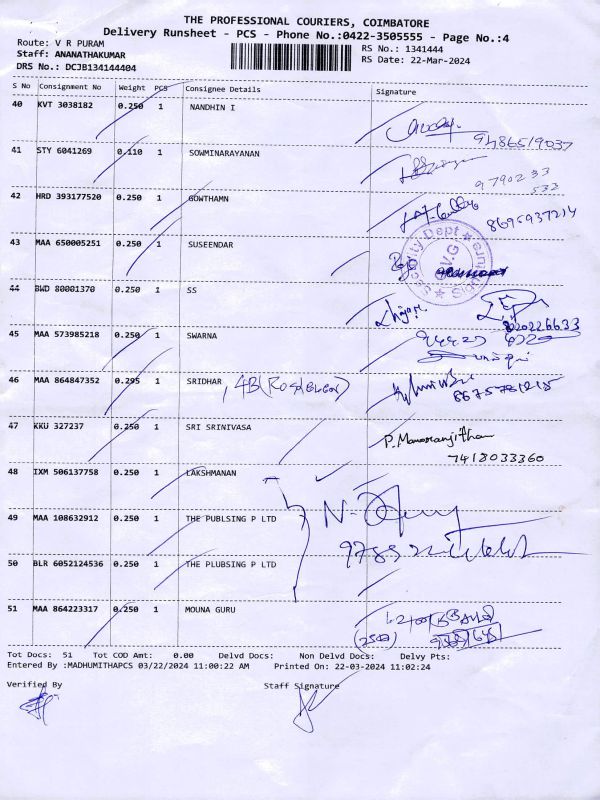 THE PROFESSIONAL COURIERS, COIMBATORE
Delivery Runsheet - PCS - Phone No.:0422-3505555 - Page No.:4
Route: V R PURAM
Staff: ANANATHAKUMAR
DRS No.: DCJB134144404
RS No.: 1341444
RS Date: 22-Mar-2024
S No Consignment No Weight PCS Consignee Details Signature
40 KVT 3038182 0.250 1 NANDHIN I
9486519037
41 STY 6041269 0.110 1 SOWMINARAYANAN
9790233
532
42 HRD 393177520 0.250 1 GOWTHAMN
8695937214
43 MAA 650005251 0.250 1 SUSEENDAR
Security Dept
V.G
44 BWD 80001370 0.250 1 SS
45 MAA 573985218 0.250 1 SWARNA
46 MAA 864847352 0.295 1 SRIDHAR
47 KKU 327237 0.250 1 SRI SRINIVASA P. Manoranjitham
7418033360
48 IXM 506137758 0.250 1 LAKSHMANAN
49 MAA 108632912 0.250 1 THE PUBLSING P LTD
50 BLR 6052124536 0.250 1 THE PLUBSING P LTD
51 MAA 864223317 0.250 1 MOUNA GURU
Tot Docs: 51 Tot COD Amt: 0.00 Delvd Docs: Non Delvd Docs: Delvy Pts:
Entered By :MADHUMITHAPCS 03/22/2024 11:00:22 AM Printed On: 22-03-2024 11:02:24
Verified By Staff Signature